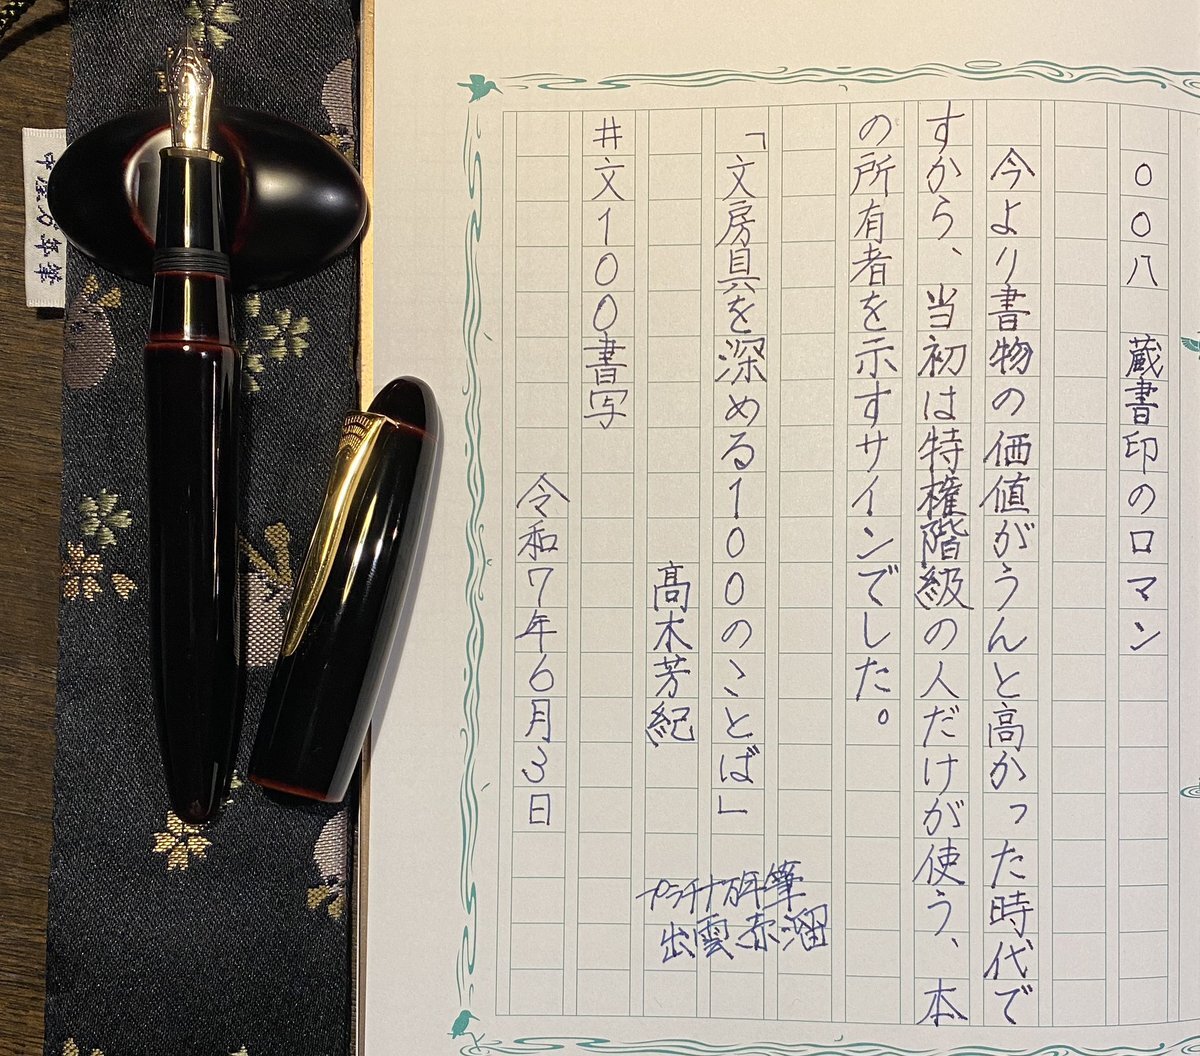 〇〇八　蔵書印のロマン
今より書物の価値がうんと高かった時代で
すから、当初は特権階級の人だけが使う、本
の所有者を示すサインでした。
「文房具を深める100のことば」
高木芳紀
#文100書写
令和7年6月3日
プラチナ万年筆
出雲赤溜